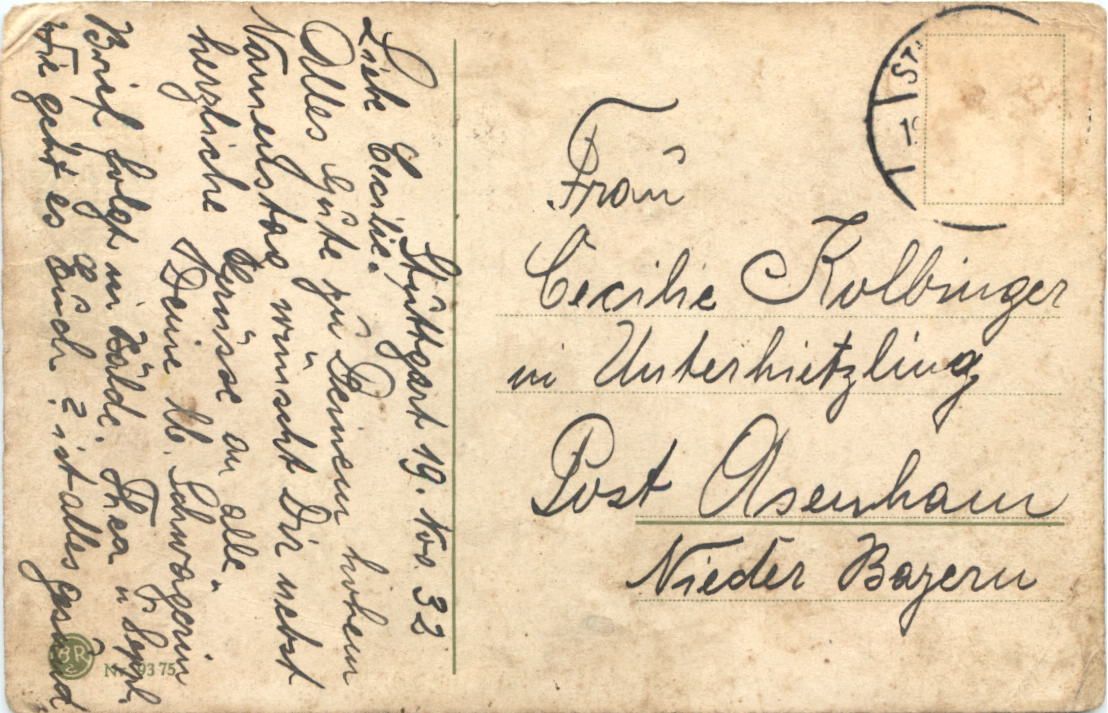 Stuttgart 19. Nov. 32
Liebe Cecilie.
Alles Gute zu Deinem hohem
Namenstag wünscht Dir nebst
herzliche Grüsse an alle
Deine lb. Schwägerin
Brief folgt in Bälde. Thea u Seppl.
Wie geht es Euch? ist alles gesund
Frau
Cecilie Kolbinger
in Unterhietzling
Post Asenham
Nieder Bayern
ST
BR
Nr. 9375